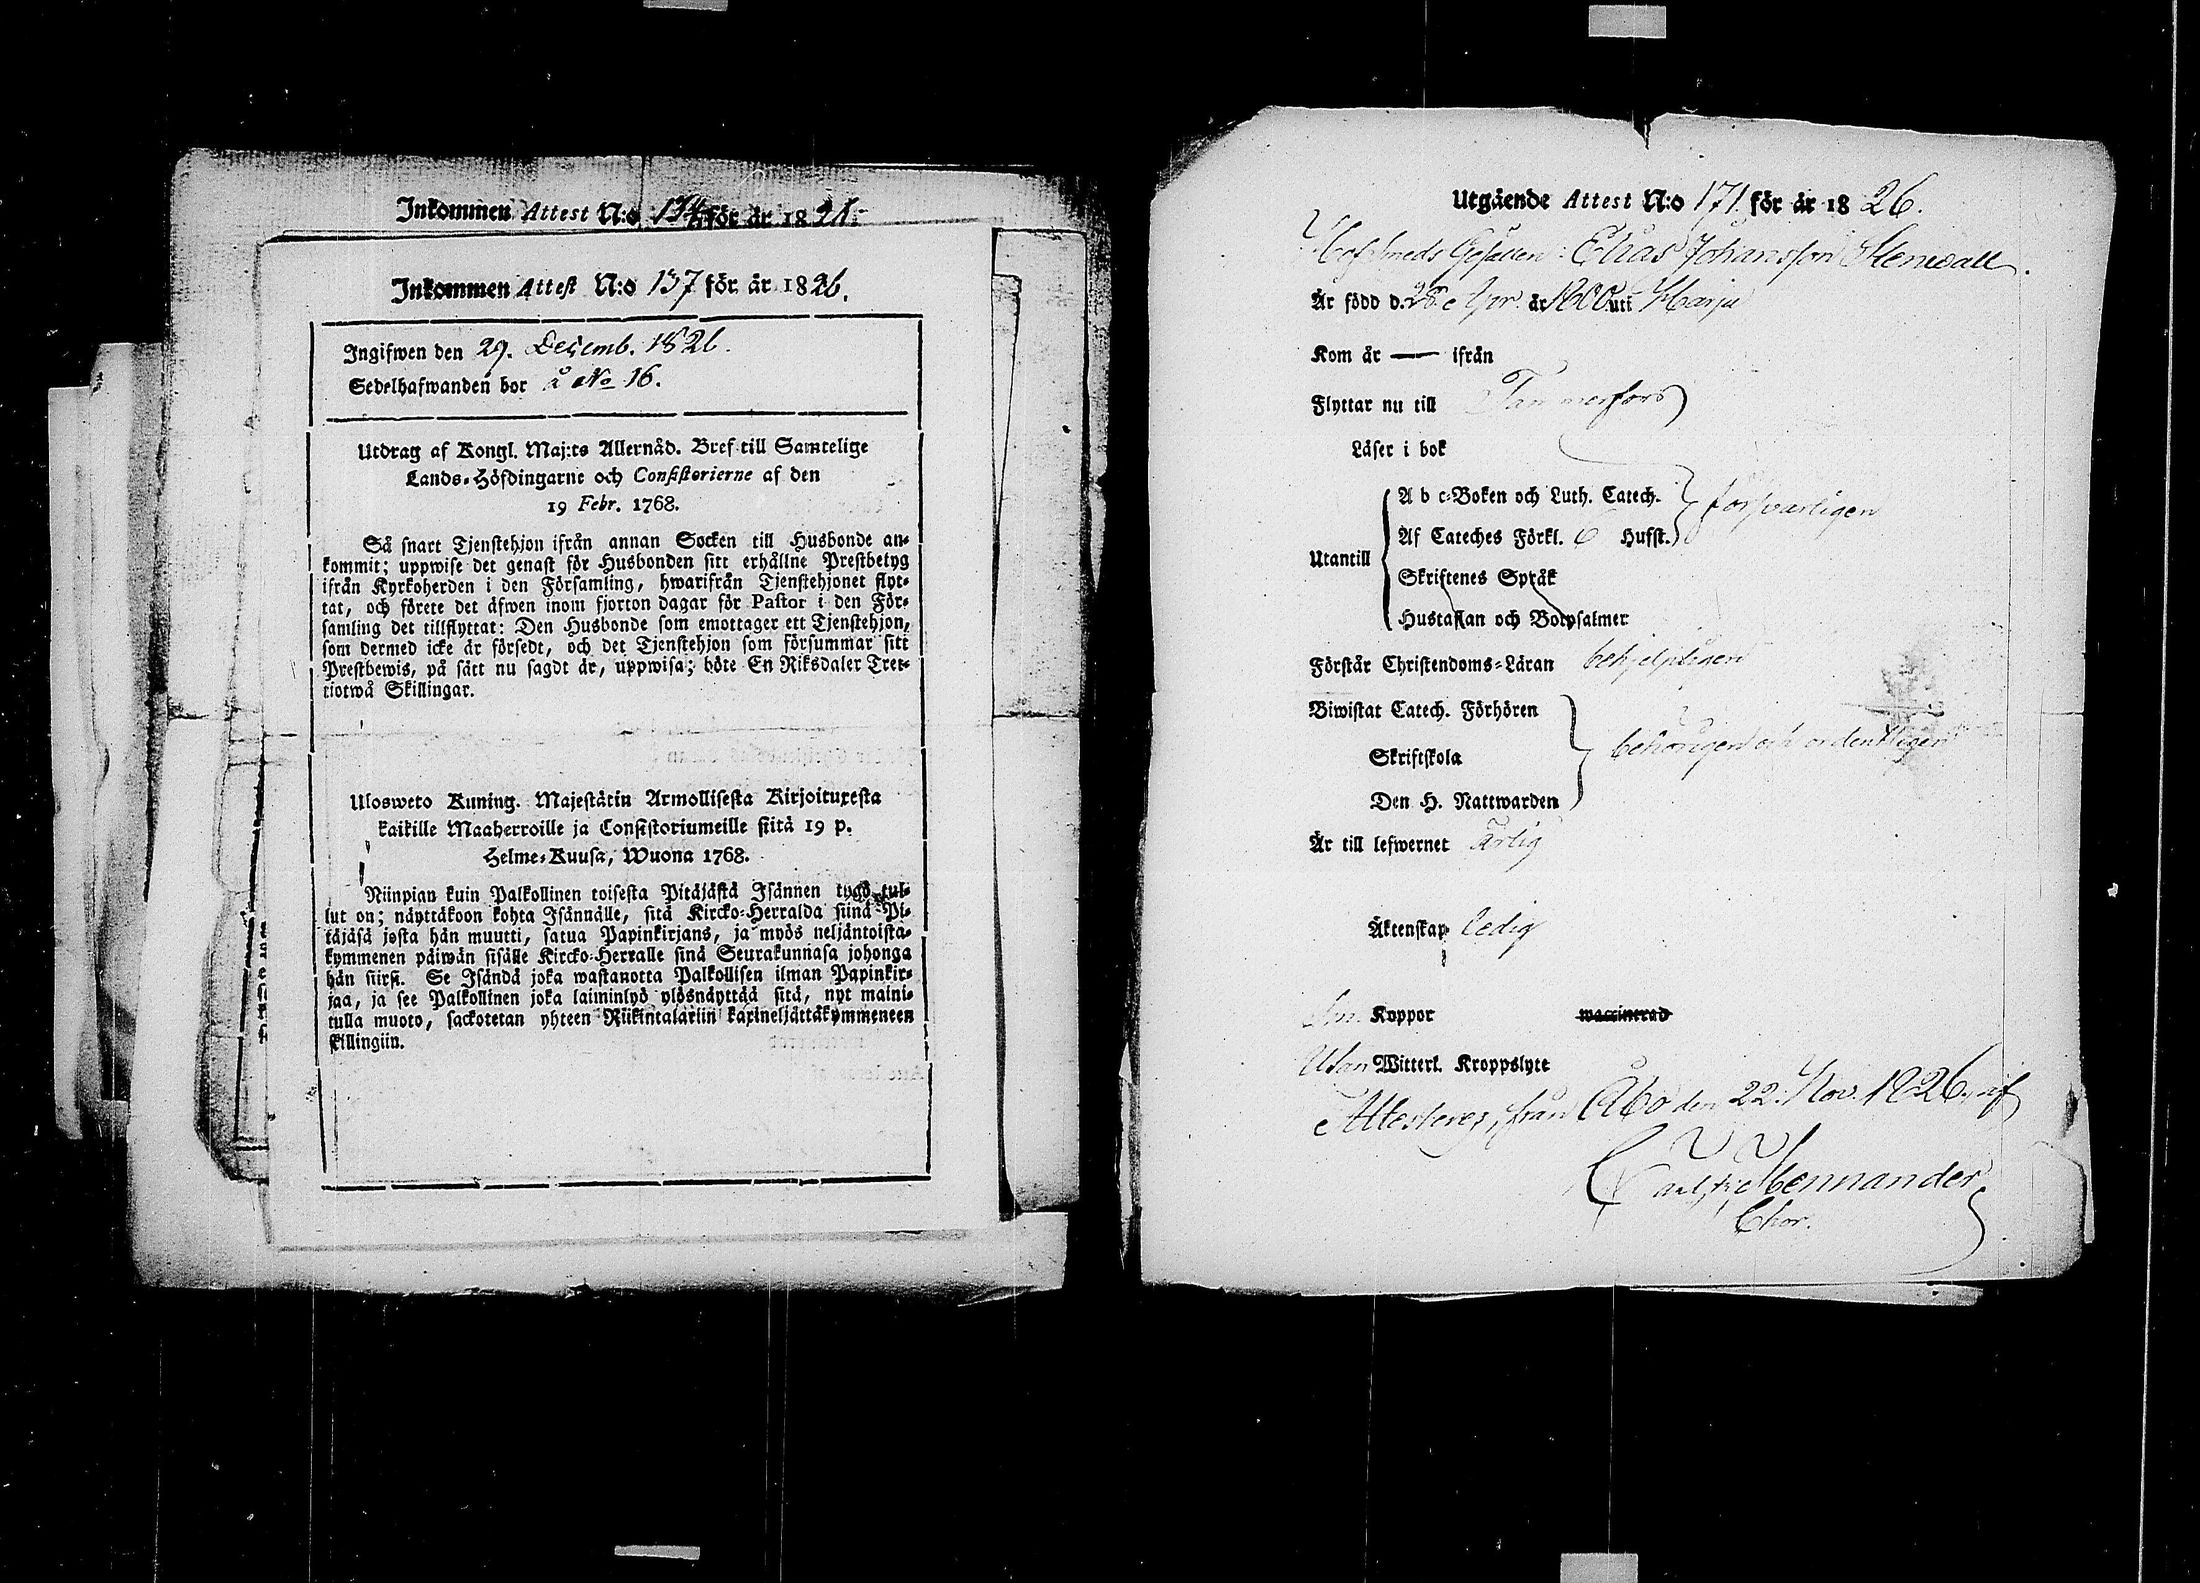 Inkommen Attest N:o 134 för år 1826.
Inkommen Attest N:o 137 för år 1826.
Ingifwen den 29. Decemb. 1826.
Sedelhafwanden bor å No 16.
Utdrag af Kongl. Maj:ts Allernåd. Bref till Samtelige
Lands-Höfdingarne och Consistorierne af den
19 Febr. 1768.
Så snart Tjenstehjon ifrån annan Socken till Husbonde an-
kommit; uppwise det genast för Husbonden sitt erhållne Prestbetyg
ifrån Kyrkoherden i den Församling, hwarifrån Tjenstehjonet flyt-
tat, och förete det äfwen inom fjorton dagar för Pastor i den För-
samling det tillflyttat: Den Husbonde som emottager ett Tjenstehjon,
som dermed icke är försedt, och det Tjenstehjon som försummar sitt
Prestbewis, på sätt nu sagdt är, uppwisa; böte En Riksdaler Tret-
tiotwå Skillingar.
Ulosweto Kuning. Majestätin Armollisesta Kirjoituxesta
kaikille Maaherroille ja Consistoriumeille siitä 19 p.
Helme-Kuusa, Wuona 1768.
Niinpian kuin Palkollinen toisesta Pitäjästä Isännen tygö tul-
lut on; näyttäkoon kohta Isännälle, sitä Kircko-Herralda siinä Pi-
täjäsä josta hän muutti, satua Papinkirjans, ja myös neljäntoista-
kymmenen päiwän sisälle Kircko-Herralle sinä Seurakunnasa johonga
hän siirsi. Se Isändä joka wastanotta Palkollisen ilman Papinkir-
jaa, ja see Palkollinen joka laiminlyö ylösnäyttää sitä, nyt maini-
tulla muoto, sackotetan yhteen Riikintalariin kaxineljättäkymmeneen
skillingiin.
Utgående Attest N:o 171 för år 1826.
Hofsmeds Gesällen: Elias Johansson Stenwall.
Är född d. 28 Apr. år 1800 uti Harju
Kom år — ifrån
Flyttar nu till Tammerfors
Läser i bok
A b c-Boken och Luth. Catech.
försvarligen
Af Cateches Förkl. 6 Hufst.
Utantill
Skriftenes Språk
Hustaflan och Botpsalmer
Förstår Christendoms-Läran behjelpligen
Biwistat Catech. Förhören
behörigen och ordentligen
Skriftskola
Den H. Nattwarden
Är till lefwernet ärlig
Äktenskap ledig
Koppor waccinerad
Utan Witterl. Kroppslyte
Attesteres, från Åbo den 22. Nov. 1826, af
Carl Fr. Mennander